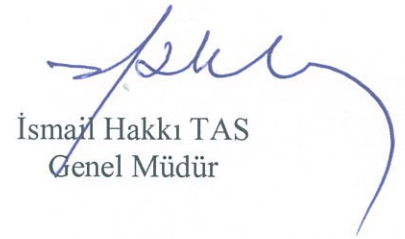 İsmail Hakkı TAS
Genel Müdür